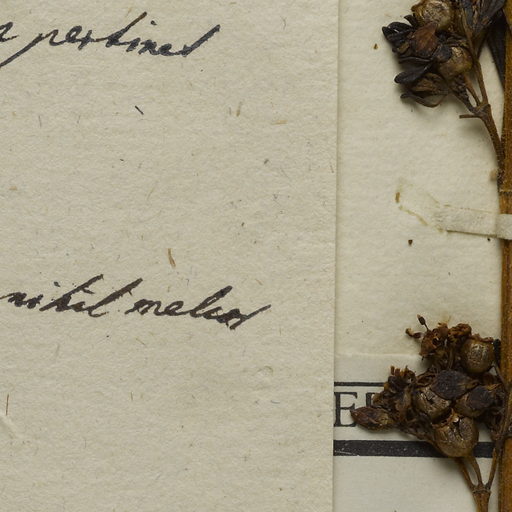 pertinet
nihil melius
E